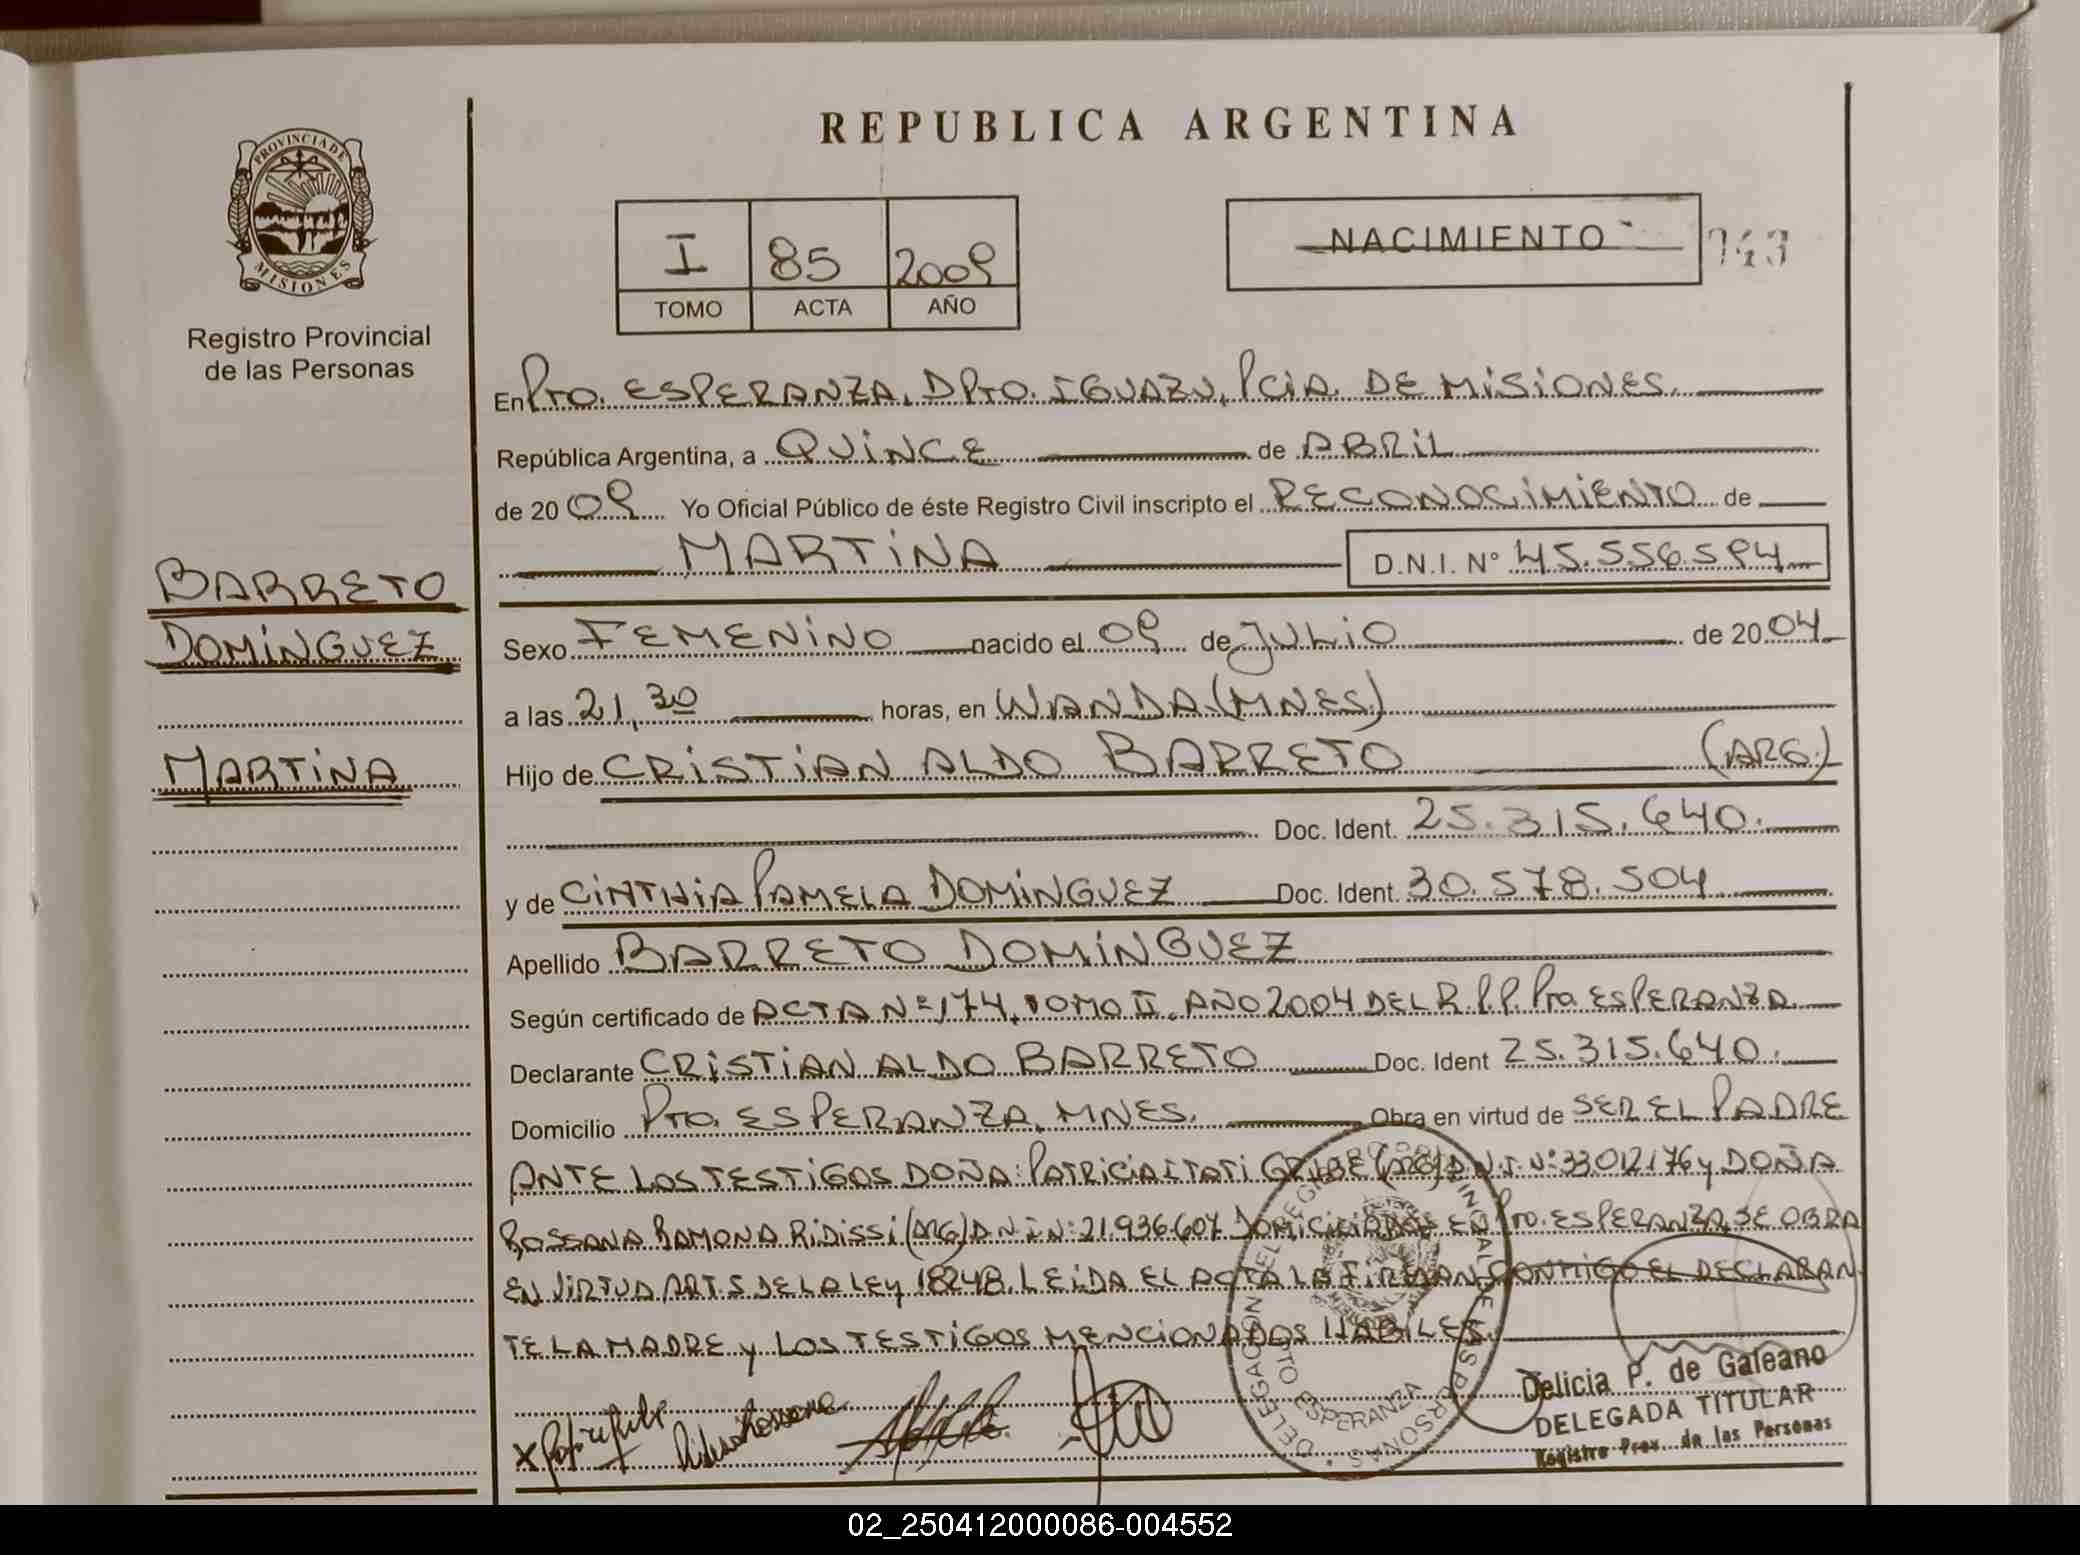 REPUBLICA ARGENTINA
PROVINCIA DE
MISIONES
Registro Provincial
de las Personas
I 85 2009
TOMO ACTA AÑO
NACIMIENTO
743
En Pto. ESPERANZA, DPTO. IGUAZU, PCIA. DE MISIONES.
República Argentina, a QUINCE de ABRIL
de 2009 Yo Oficial Público de éste Registro Civil inscripto el RECONOCIMIENTO de
MARTINA D.N.I. N° 45.556.594
BARRETO
DOMÍNGUEZ
MARTINA
Sexo FEMENINO nacido el 09 de JULIO de 2004
a las 21,30 horas, en WANDA (MNES)
Hijo de CRISTIAN ALDO BARRETO (ARG.)
Doc. Ident. 25.315.640.
y de CINTHIA PAMELA DOMÍNGUEZ Doc. Ident. 30.578.504
Apellido BARRETO DOMÍNGUEZ
Según certificado de ACTA Nº 174, TOMO II, AÑO 2004 DEL R.P.P. Pto. ESPERANZA
Declarante CRISTIAN ALDO BARRETO Doc. Ident 25.315.640.
Domicilio Pto. ESPERANZA, MNES. Obra en virtud de SER EL PADRE
ANTE LOS TESTIGOS DOÑA: PATRICIA ITATI (ARG) D.N.I. Nº: 33.012.176 y DOÑA
ROSSANA RAMONA RIDISSI (ARG) D.N.I. N: 21.936.607 DOMICILIADOS EN Pto. ESPERANZA, SE OBRA
EN VIRTUD ART. 5 DE LA LEY 18248. LEIDA EL ACTA LA FIRMAN CONMIGO EL DECLARAN
TE LA MADRE y LOS TESTIGOS MENCIONADOS HABILES.
DELEGACION DEL REGISTRO PROVINCIAL DE LAS PERSONAS
ESPERANZA
Delicia P. de Galeano
DELEGADA TITULAR
Registro Prov. de las Personas
02_250412000086-004552